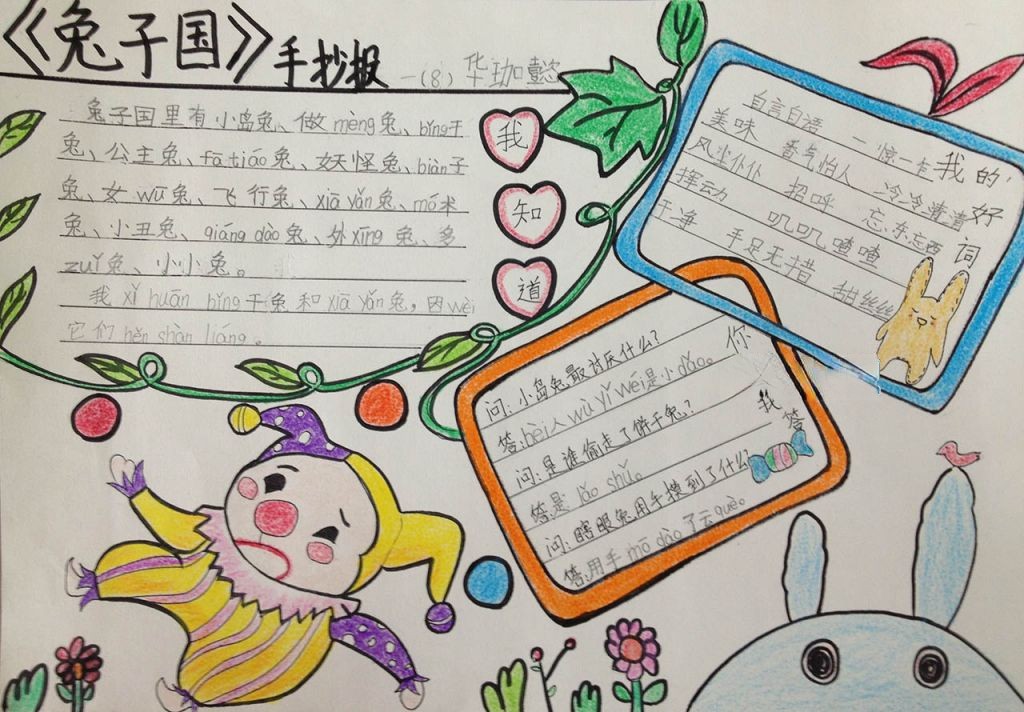 《兔子国》手抄报 一(8) 华珈懿
兔子国里有小岛兔、做mèng兔、bǐng干
兔、公主兔、fā tiáo兔、妖怪兔、biàn子
兔、女wū兔、飞行兔、xiā yǎn兔、mó术
兔、小丑兔、qiáng dào兔、外xīng兔、多
zuǐ兔、小小兔。
我xǐ huān bǐng干兔和xiā yǎn兔,因wèi
它们hěn shàn liáng。
我
知
道
自言自语 一惊一乍
美味 香气怕人 冷冷清清
风尘仆仆 招呼 忘东忘西
挥动 叽叽喳喳
干净 手足无措 甜丝丝
我的好词
问:小岛兔最讨厌什么?
答:bèi人wù yǐ wéi是小dǎo。
问:是谁偷走了饼干兔?
答:是lǎo shǔ。
问:瞎眼兔用手摸到了什么
答:用手mō dào了云què。
你
我答